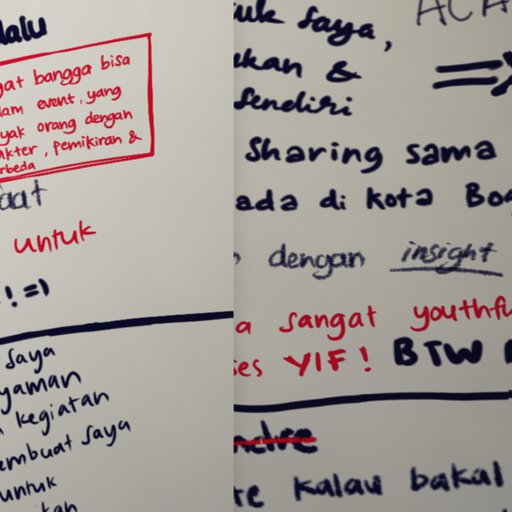 lalu
gat bangga bisa
lam event, yang
yak orang dengan
akter, pemikiran &
rbeda
aat
untuk
! =)
saya
yaman
kegiatan
embuat saya
untuk
uk saya,
ukan &
Sendiri
ACA
Sharing sama
ada di kota Bog
dengan insight
a sangat youthfu
ses YIF! BTW
te kalau bakal